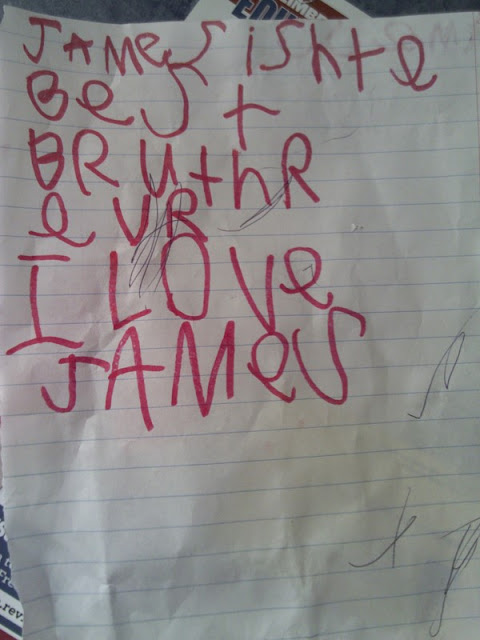 JAMeS iS hte
BeST
BRUthR
eVR
I LOVe
JAMeS